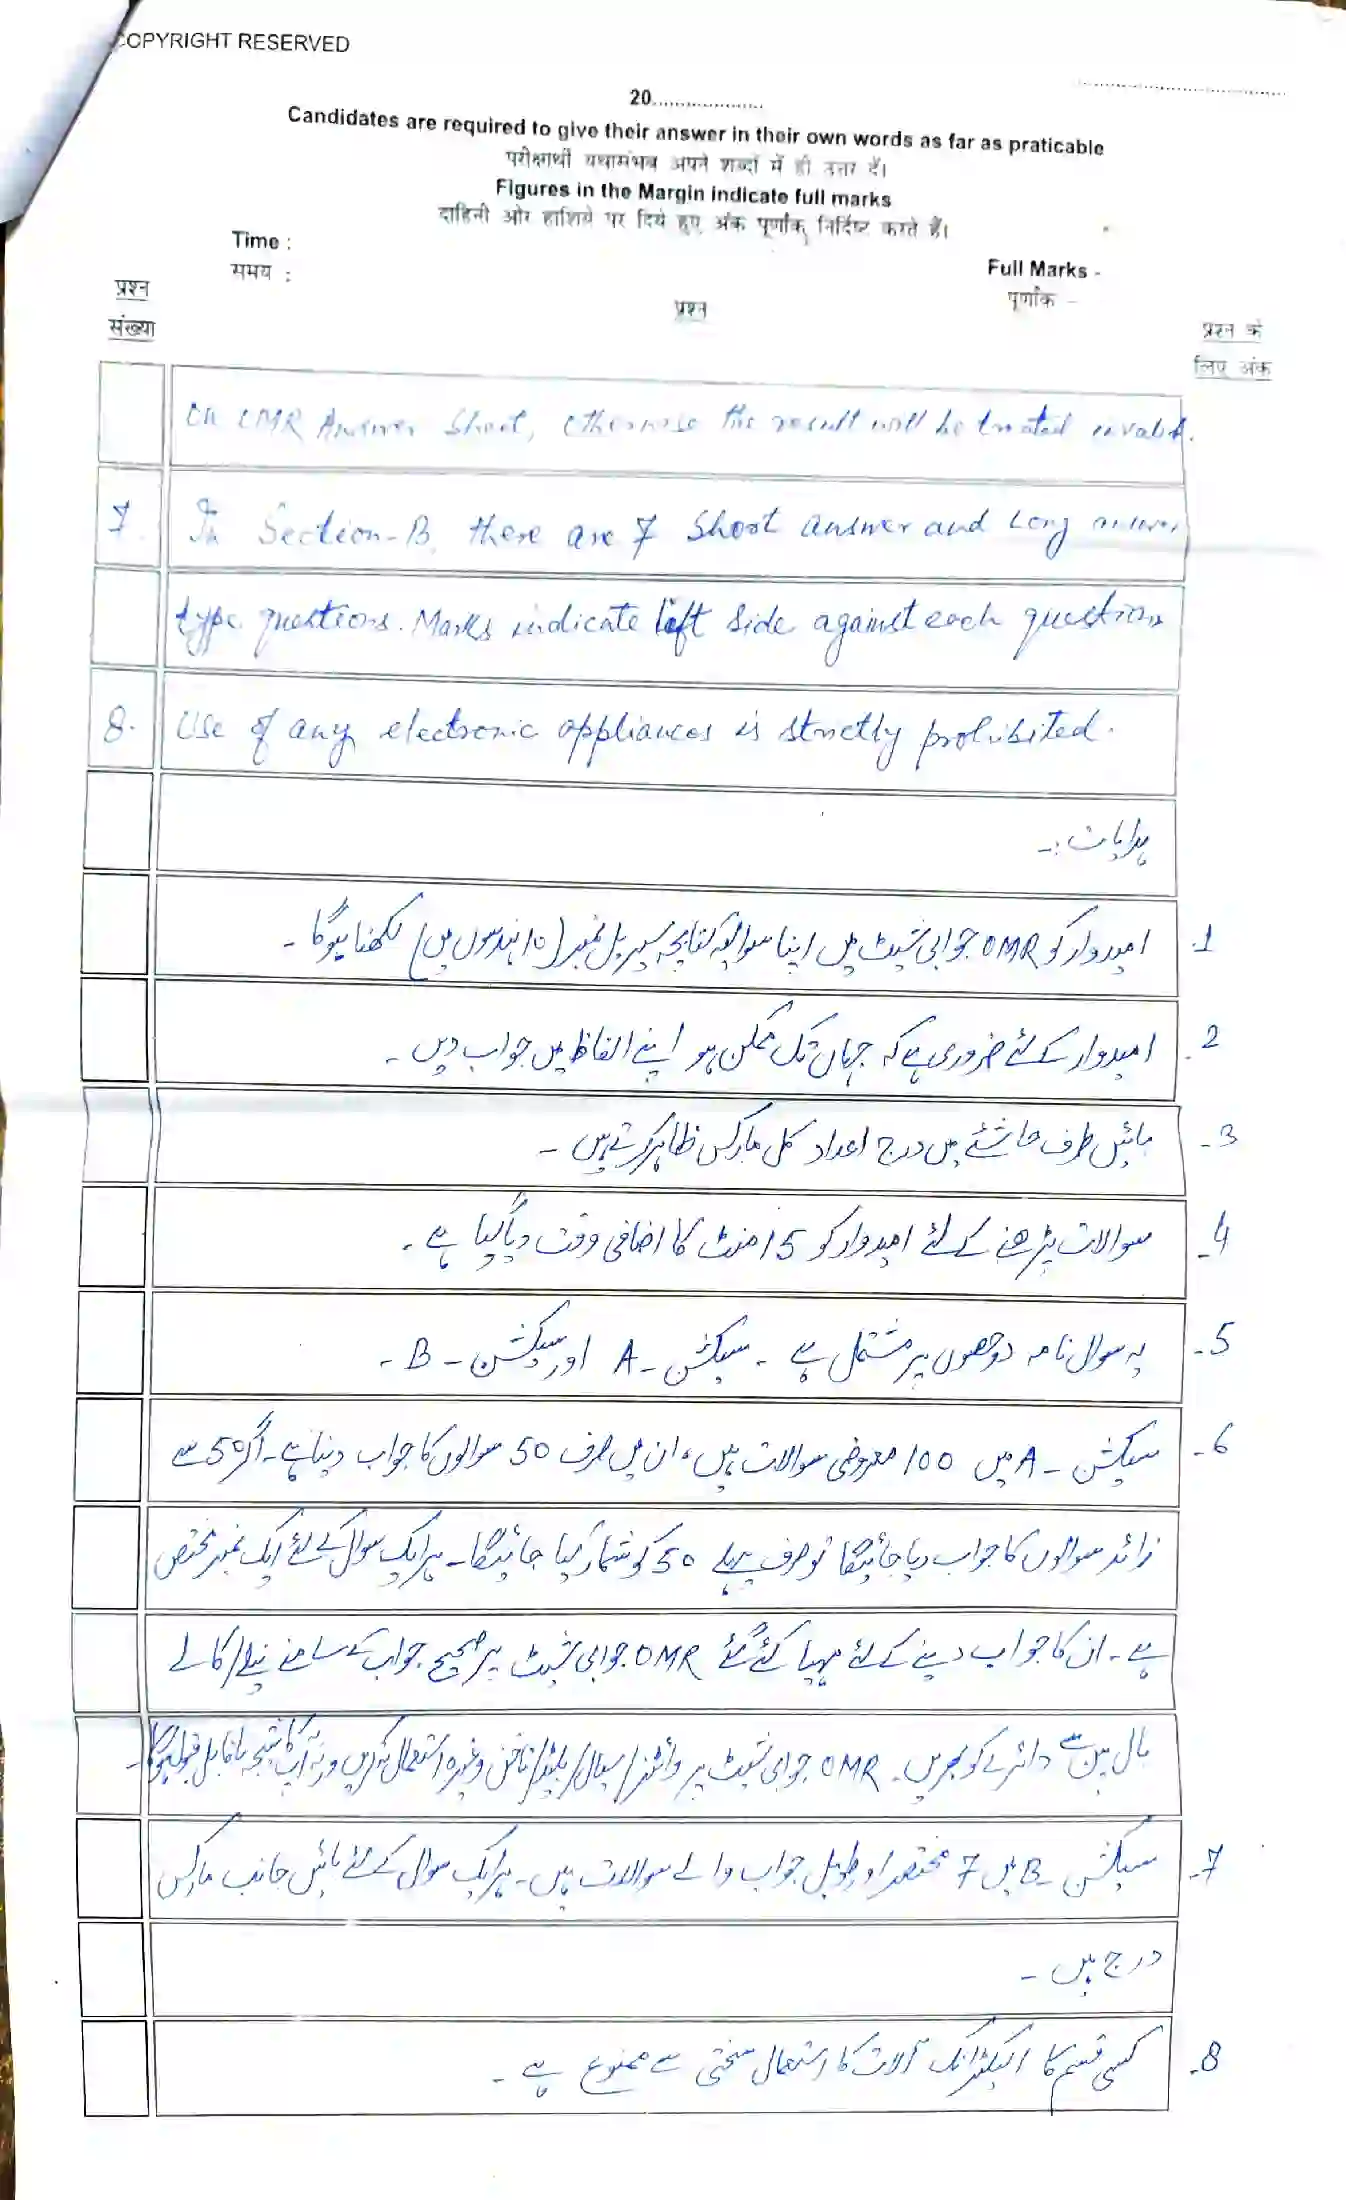 COPYRIGHT RESERVED
20...................
Candidates are required to give their answer in their own words as far as praticable
परीक्षार्थी यथासंभव अपने शब्दों में ही उत्तर दें।
Figures in the Margin indicate full marks
दाहिनी ओर हाशिये पर दिये हुए अंक पूर्णांक निर्दिष्ट करते हैं।
Time :
समय :
Full Marks -
पूर्णांक -
प्रश्न संख्या
प्रश्न
प्रश्न के लिए अंक
on OMR Answer Sheet, otherwise the result will be treated invalid.
7. In Section-B, there are 7 Short answer and Long answer
type questions. Marks indicate left side against each questions
8. Use of any electronic appliances is strictly prohibited.
ہدایات :-
1. امیدوار کو OMR جوابی شیٹ میں اپنا سوالیہ کتابچہ سیریل نمبر (10 ہندسوں میں) لکھنا ہوگا ۔
2. امیدوار کے لئے ضروری ہے کہ جہاں تک ممکن ہو اپنے الفاظ میں جواب دیں ۔
3۔ بائیں طرف حاشئے میں درج اعداد کل مارکس ظاہر کرتے ہیں ۔
4۔ سوالات پڑھنے کے لئے امیدوار کو 15 منٹ کا اضافی وقت دیا گیا ہے ۔
5۔ یہ سوال نامہ دو حصوں پر مشتمل ہے ۔ سیکشن ۔ A اور سیکشن ۔ B ۔
6۔ سیکشن ۔ A میں 100 معروضی سوالات ہیں، ان میں صرف 50 سوالوں کا جواب دینا ہے ۔ اگر 50 سے
زائد سوالوں کا جواب دیا جائیگا تو صرف پہلے 50 کو شمار کیا جائیگا ۔ ہر ایک سوال کے لئے ایک نمبر مختص
ہے ۔ ان کا جواب دینے کے لئے مہیا کئے گئے OMR جوابی شیٹ پر صحیح جواب کے سامنے نیلے/کالے
بال پن سے دائرے کو بھریں ۔ OMR جوابی شیٹ پر وائٹنر/سیال/بلیڈ/ناخن وغیرہ استعمال نہ کریں ورنہ آپ کا نتیجہ ناقابل قبول ہوگا ۔
7۔ سیکشن B میں 7 مختصر اور طویل جواب والے سوالات ہیں ۔ ہر ایک سوال کے لئے بائیں جانب مارکس
درج ہیں ۔
8۔ کسی قسم کا الیکٹرانک آلات کا استعمال سختی سے ممنوع ہے ۔